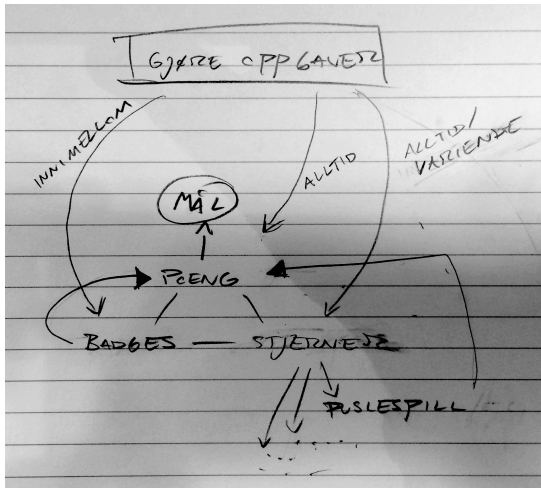 GJØRE OPPGAVER
INNIMELLOM
ALLTID
ALLTID/
VARIENDE
MÅL
POENG
BADGES
STJERNER
PUSLESPILL